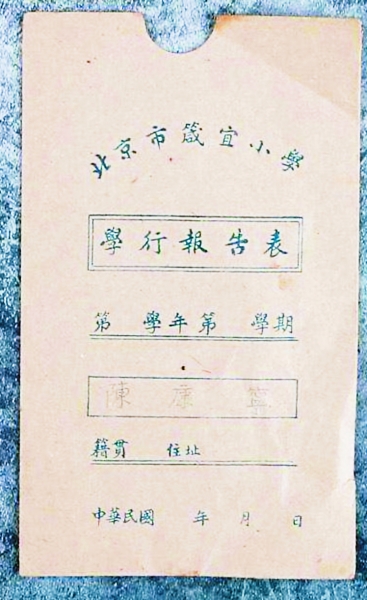 北京市箴宜小學
學行報告表
第 學年第 學期
陳康寧
籍貫 住址
中華民國 年 月 日